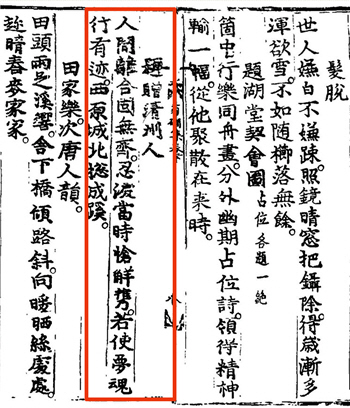 髮脫
世人嫌白不嫌踈。照鏡晴窓把鑷除。得歲漸多
渾欲雪。不如随櫛落無餘。
題湖堂契會圖 占位各題一絶
箇中行樂同舟畫。分外幽期占位詩。領得精神
輸一幅。從他聚散在來時。
贈綉州人
人間離合固無齊。忍淚當時愴觧携。若使夢魂
行有迹。西原城北緫成蹊。
田家樂。次唐人韻。
田頭雨足溪響。舍下橋傾路斜。向暖晒絲處處。
趂晴舂麥家家。